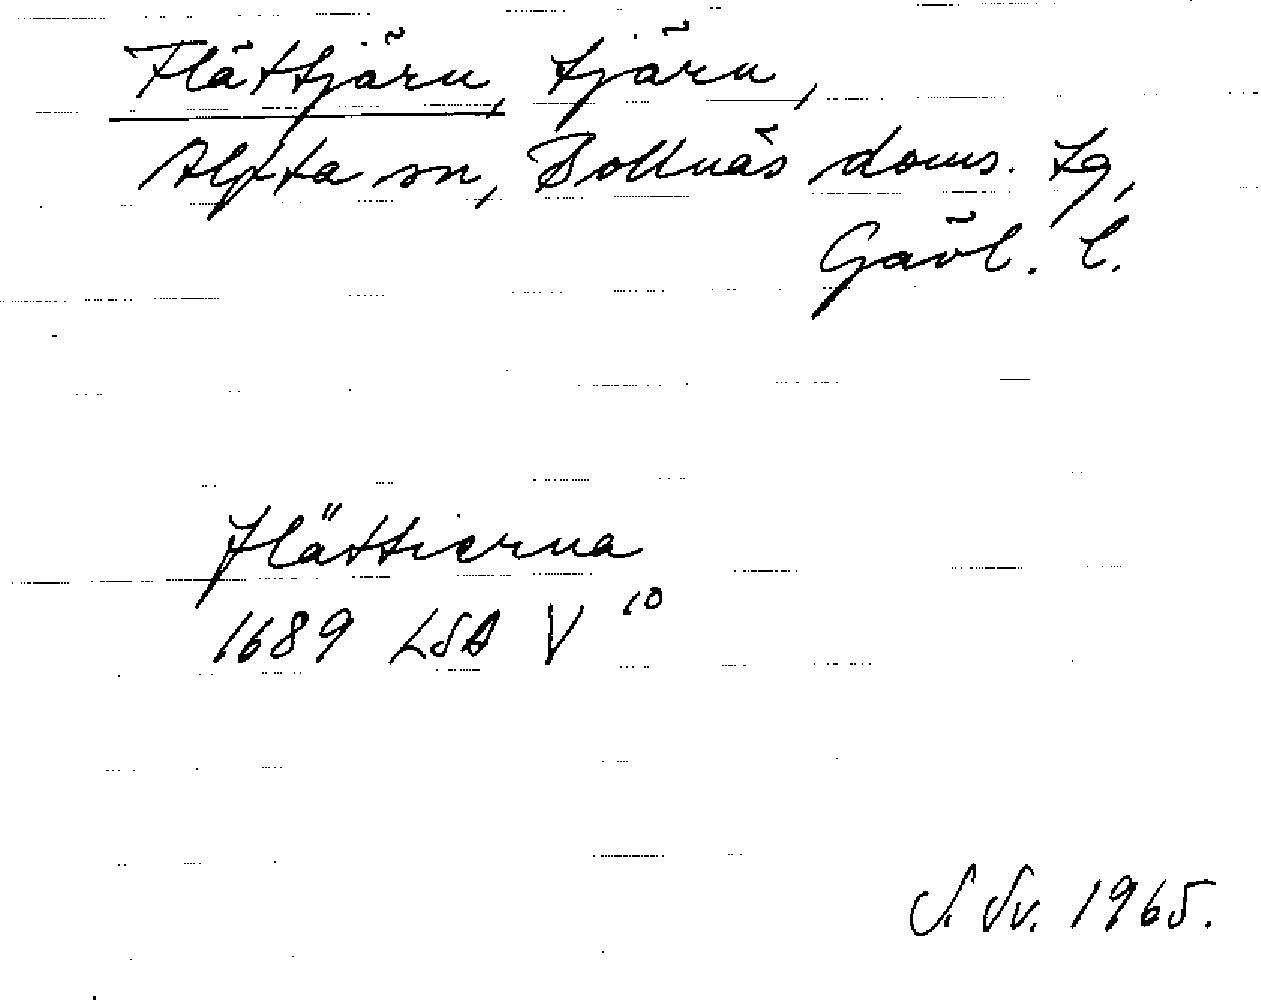 Flättjärn, tjärn,
Alfta sn, Bollnäs doms. tg,
Gävl. l.
Flättierna
1689 LSA V 10
S. Sv. 1965.